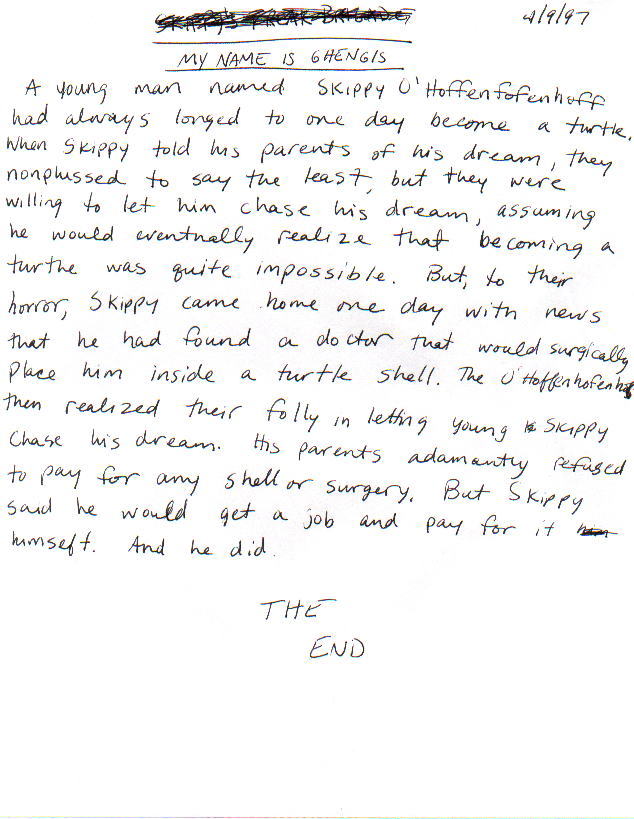 SKIPPY'S FREAK BRIGADE 4/9/97
MY NAME IS GHENGIS
A young man named Skippy O'Hoffenfofenhoff
had always longed to one day become a turtle.
When Skippy told his parents of his dream, they
nonplussed to say the least, but they were
willing to let him chase his dream, assuming
he would eventually realize that becoming a
turtle was quite impossible. But, to their
horror, Skippy came home one day with news
that he had found a doctor that would surgically
place him inside a turtle shell. The O'Hoffenhofenhof
then realized their folly in letting young Skippy
chase his dream. His parents adamantly refused
to pay for any shell or surgery. But Skippy
said he would get a job and pay for it him
himself. And he did.
THE
END